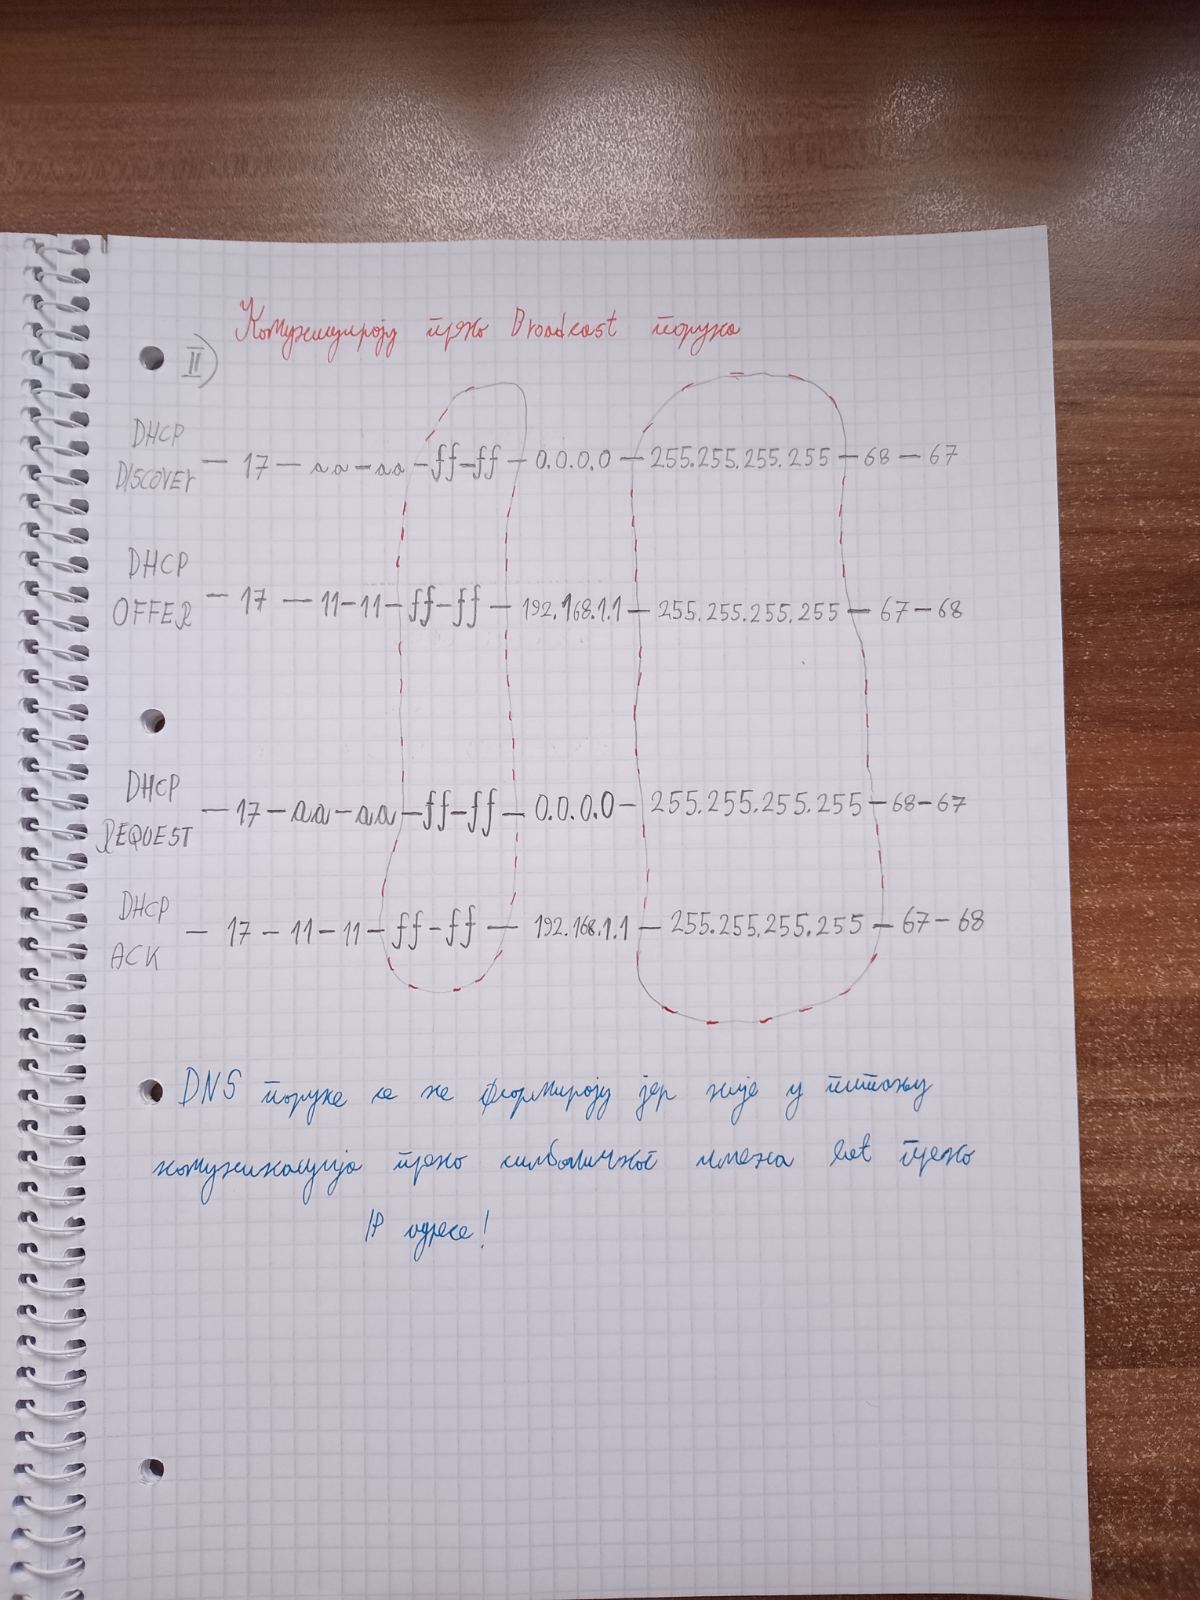 Комуницирају преко Broadcast порука
II)
DHCP DISCOVER — 17 — aa-aa-ff-ff — 0.0.0.0 — 255.255.255.255 — 68 — 67
DHCP OFFER — 17 — 11-11-ff-ff — 192.168.1.1 — 255.255.255.255 — 67-68
DHCP REQUEST — 17-aa-aa-ff-ff — 0.0.0.0 - 255.255.255.255 - 68-67
DHCP ACK — 17 - 11-11-ff-ff — 192.168.1.1 — 255.255.255.255 — 67-68
DNS поруке се не формирају јер није у питању
комуникација преко симболичког имена већ преко
IP адресе!